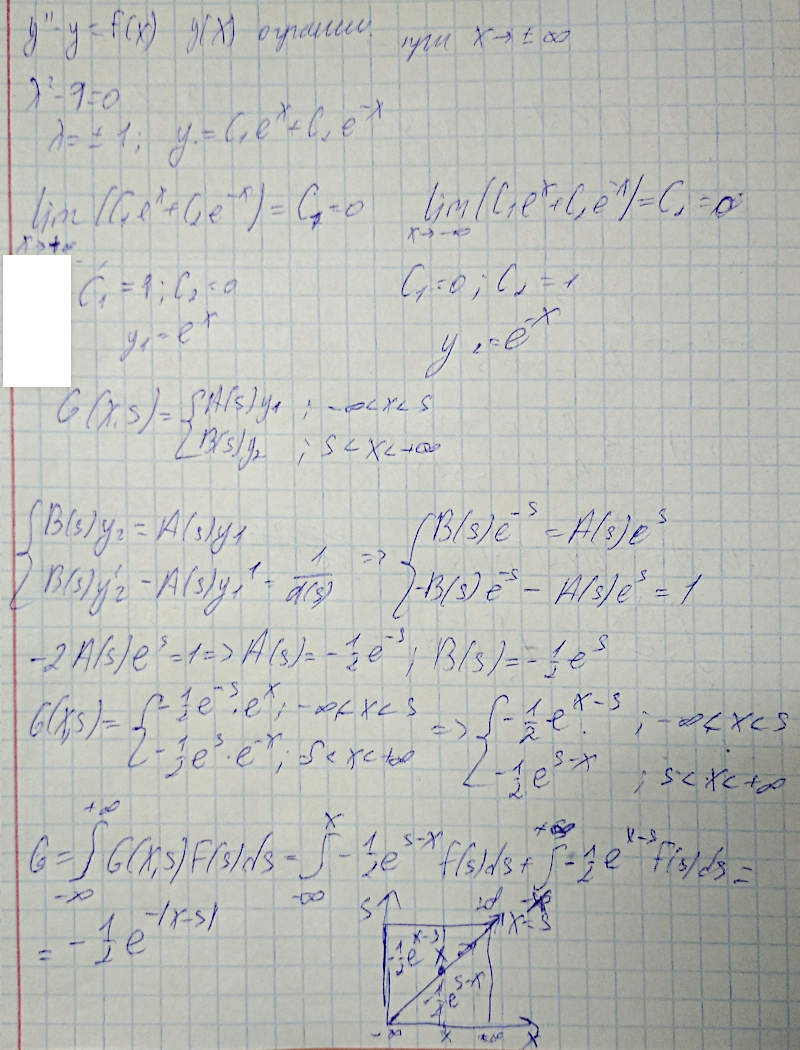 y'' - y = f(x) y(x) огранич. при x → ±∞
λ² - 1 = 0
λ = ±1; y = C₁eˣ + C₂e⁻ˣ
lim (C₁eˣ + C₂e⁻ˣ) = C₁ = 0 lim (C₁eˣ + C₂e⁻ˣ) = C₂ = 0
x → +∞ x → -∞
C₁ = 1; C₂ = 0 C₁ = 0; C₂ = 1
y₁ = eˣ y₂ = e⁻ˣ
G(x,s) = { A(s)y₁ ; -∞ < x < s
B(s)y₂ ; s < x < +∞
{ B(s)y₂ = A(s)y₁ => { B(s)e⁻ˢ = A(s)eˢ
B(s)y₂' - A(s)y₁' = 1/d(s) -B(s)e⁻ˢ - A(s)eˢ = 1
-2A(s)eˢ = 1 => A(s) = -1/2 e⁻ˢ; B(s) = -1/2 eˢ
G(x,s) = { -1/2 e⁻ˢ · eˣ; -∞ < x < s => { -1/2 eˣ⁻ˢ ; -∞ < x < s
-1/2 eˢ · e⁻ˣ; s < x < +∞ -1/2 eˢ⁻ˣ ; s < x < +∞
G = ∫₋∞⁺∞ G(x,s) f(s) ds = ∫₋∞ˣ -1/2 eˢ⁻ˣ f(s) ds + ∫ₓ⁺∞ -1/2 eˣ⁻ˢ f(s) ds =
= -1/2 e^-|x-s|
s
x = s
-1/2 eˣ⁻ˢ
x
-1/2 eˢ⁻ˣ
-∞ x +∞ x